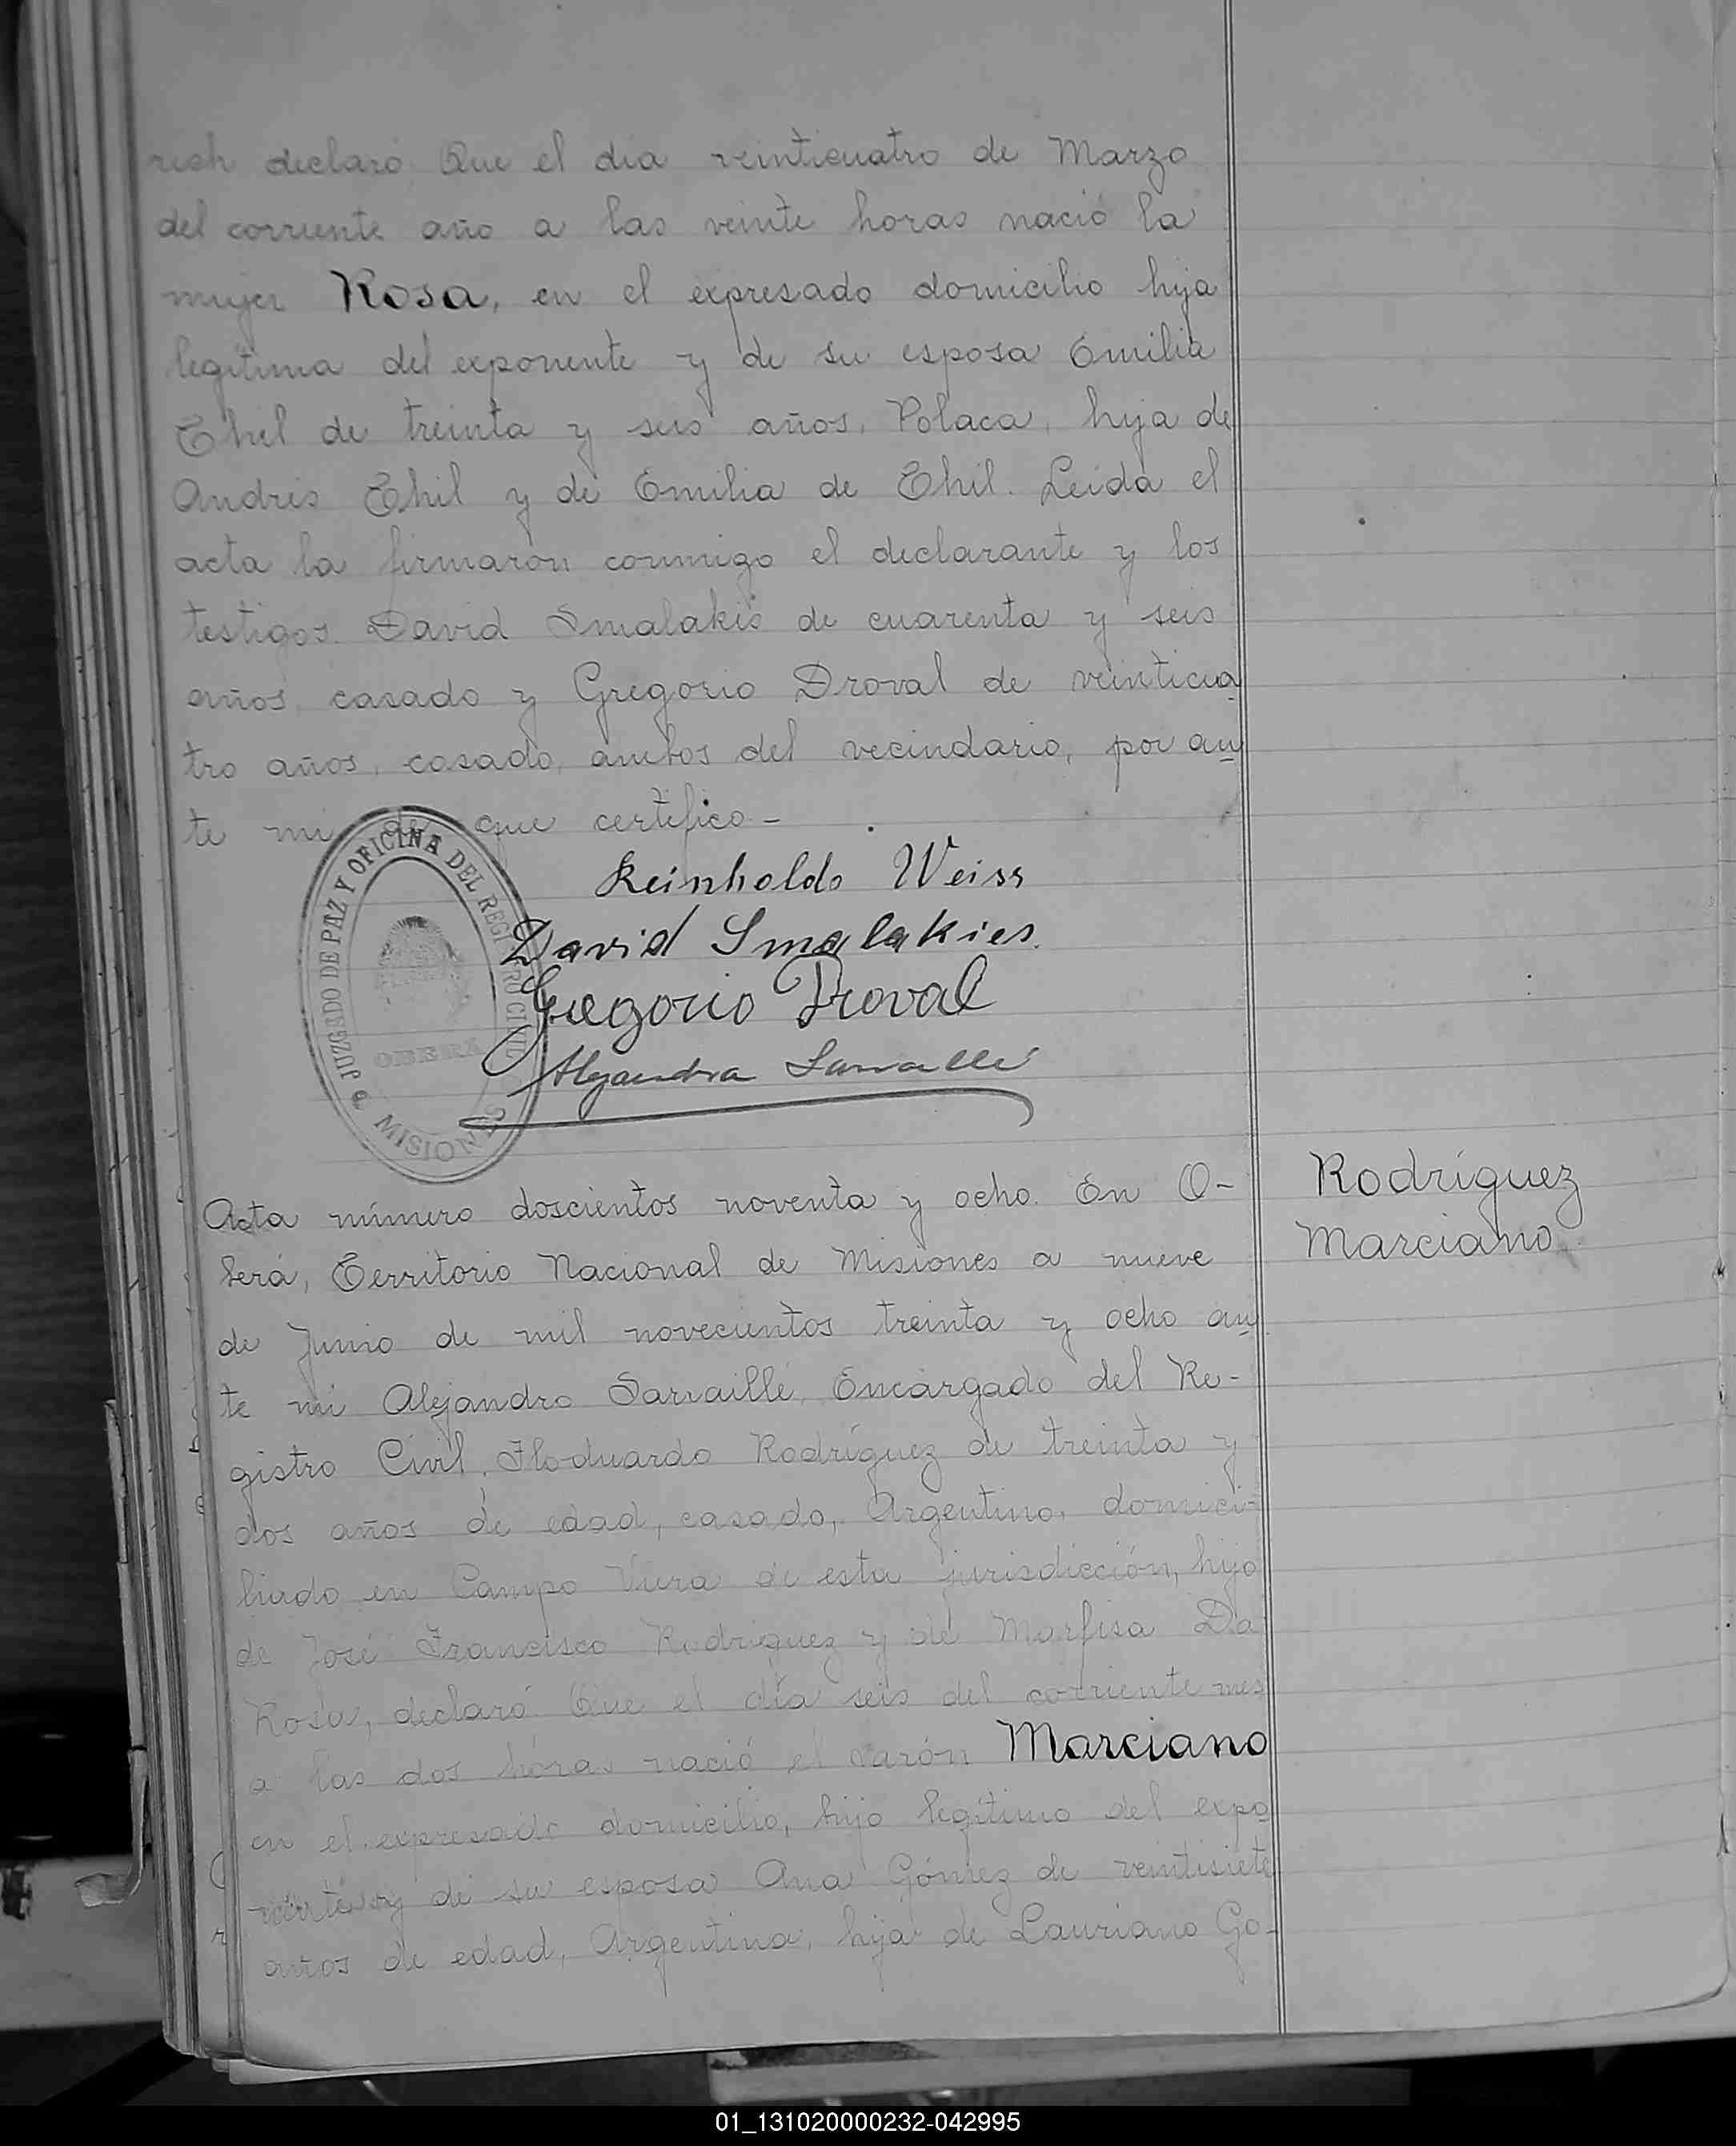 rich declaró: Que el día veinticuatro de Marzo
del corriente año a las veinte horas nació la
mujer Rosa, en el expresado domicilio hija
legítima del exponente y de su esposa Emilia
Ehil de treinta y seis años, Polaca, hija de
Andrés Ehil y de Emilia de Ehil. Leída el
acta la firmaron conmigo el declarante y los
testigos David Smalakis de cuarenta y seis
años, casado y Gregorio Droval de veinticua
tro años, casado, ambos del vecindario, por an
te mi de que certifico-
Reinholdo Weiss
David Smalakies
Gregorio Droval
Alejandro Sarraillé
JUZGADO DE PAZ Y OFICINA DEL REGISTRO CIVIL
OBERÁ
MISIONES
Rodríguez
Marciano
Acta número doscientos noventa y ocho. En O-
berá, Territorio Nacional de Misiones a nueve
de Junio de mil novecientos treinta y ocho an
te mi Alejandro Sarraillé, Encargado del Re-
gistro Civil, Floduardo Rodríguez de treinta y
dos años de edad, casado, Argentino, domici-
liado en Campo Viera de esta jurisdicción, hijo
de José Francisco Rodríguez y de Marfisa Da
Rosa, declaró: Que el día seis del corriente mes
a las dos horas nació el varón Marciano
en el expresado domicilio, hijo legítimo del expo
nente y de su esposa Ana Gómez de veintisiete
años de edad, Argentina, hija de Lauriano Go-
01_131020000232-042995